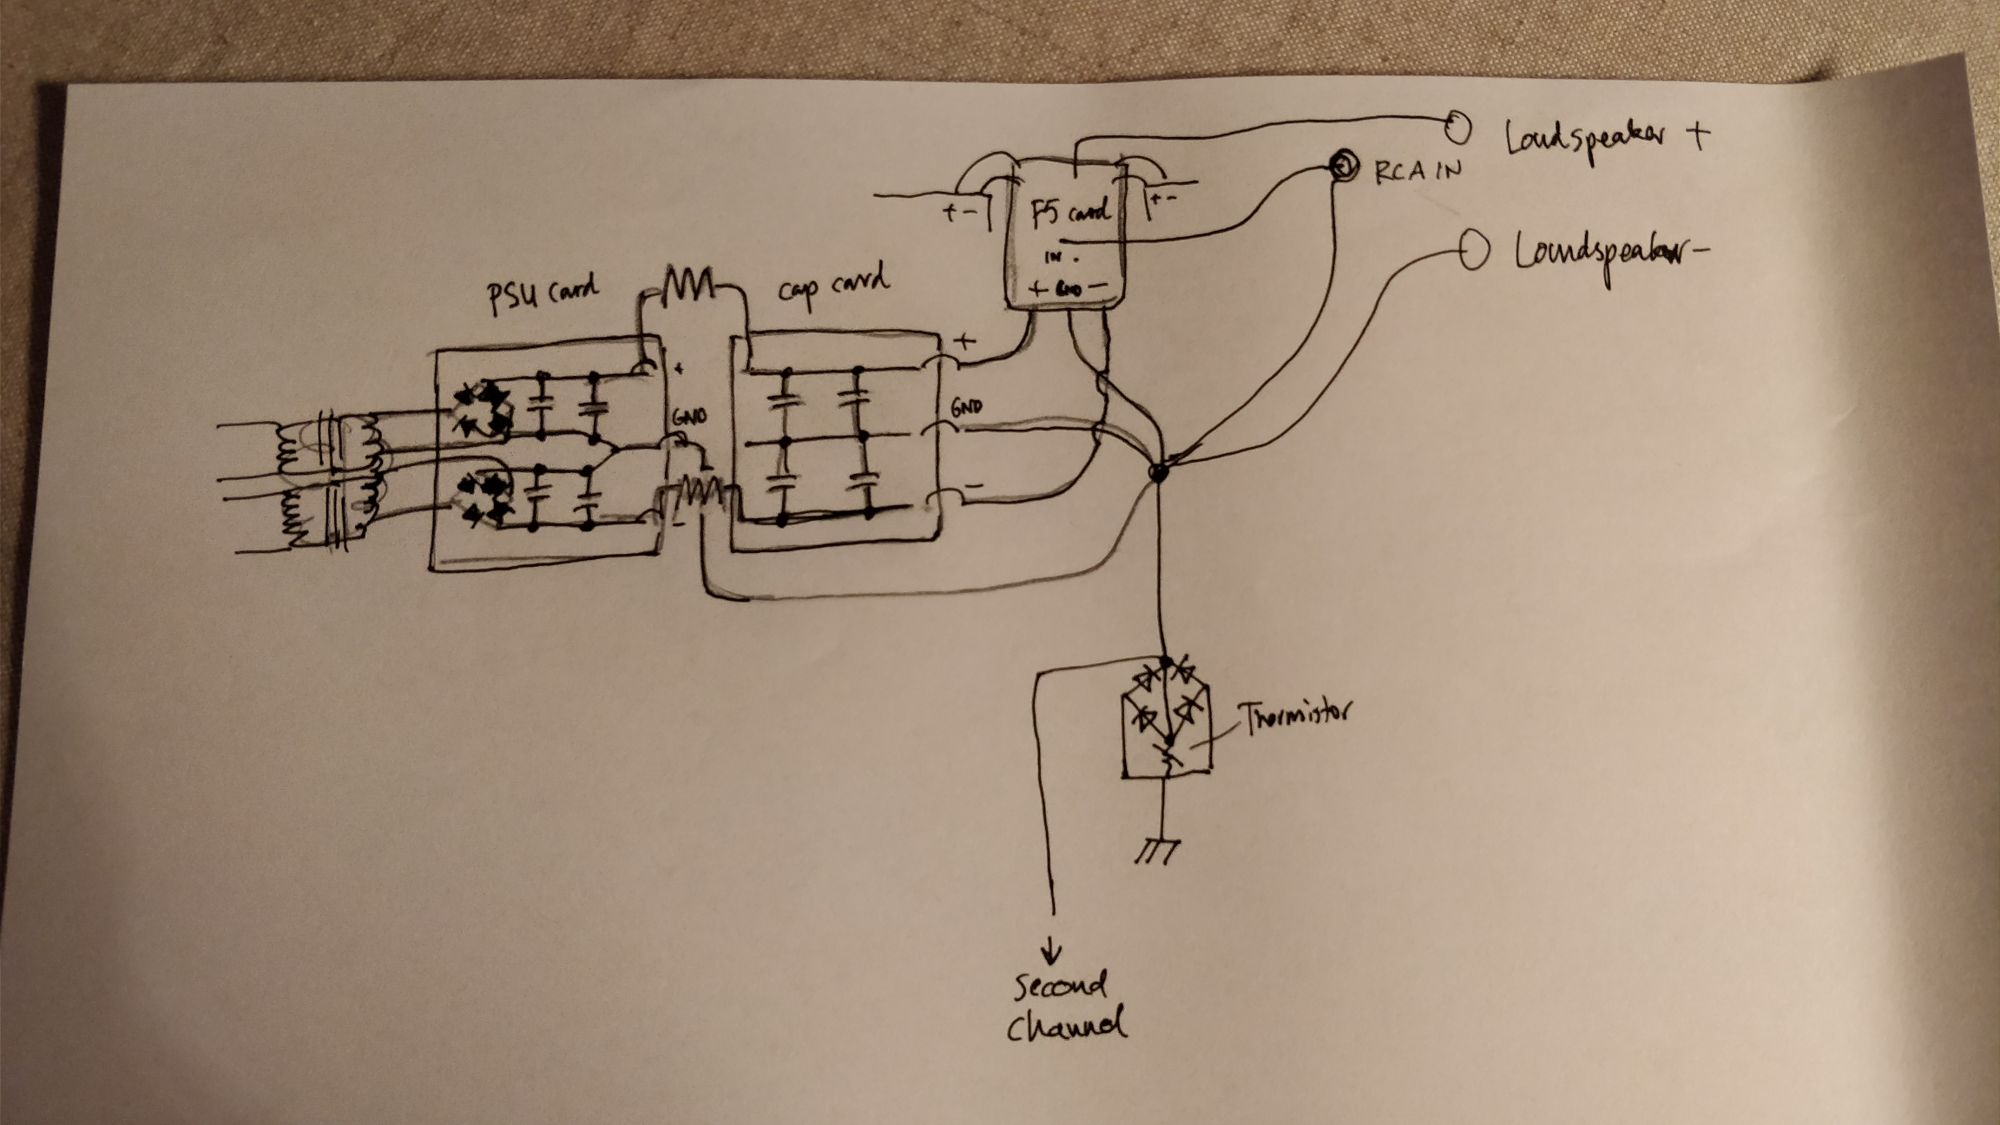 Loudspeaker +
RCA IN
Loudspeaker -
F5 card
IN .
+ GND -
+ -
+ -
PSU card
cap card
+
GND
-
+
GND
-
Thermistor
Second
Channel